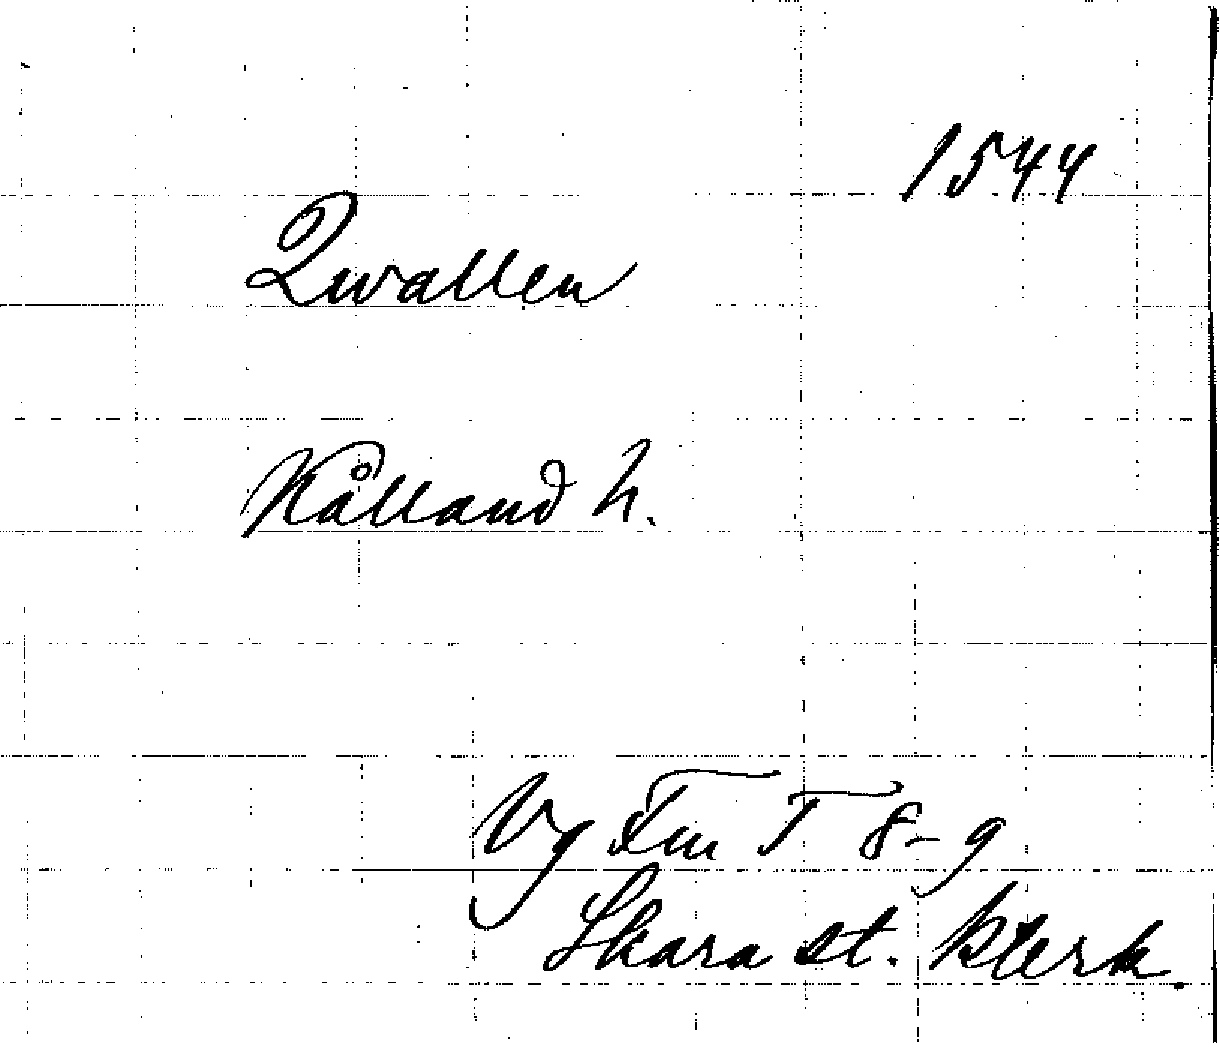 1544
Qwallen
Kålland h.
Vg Fm T 8-9
Skara st. klerk.